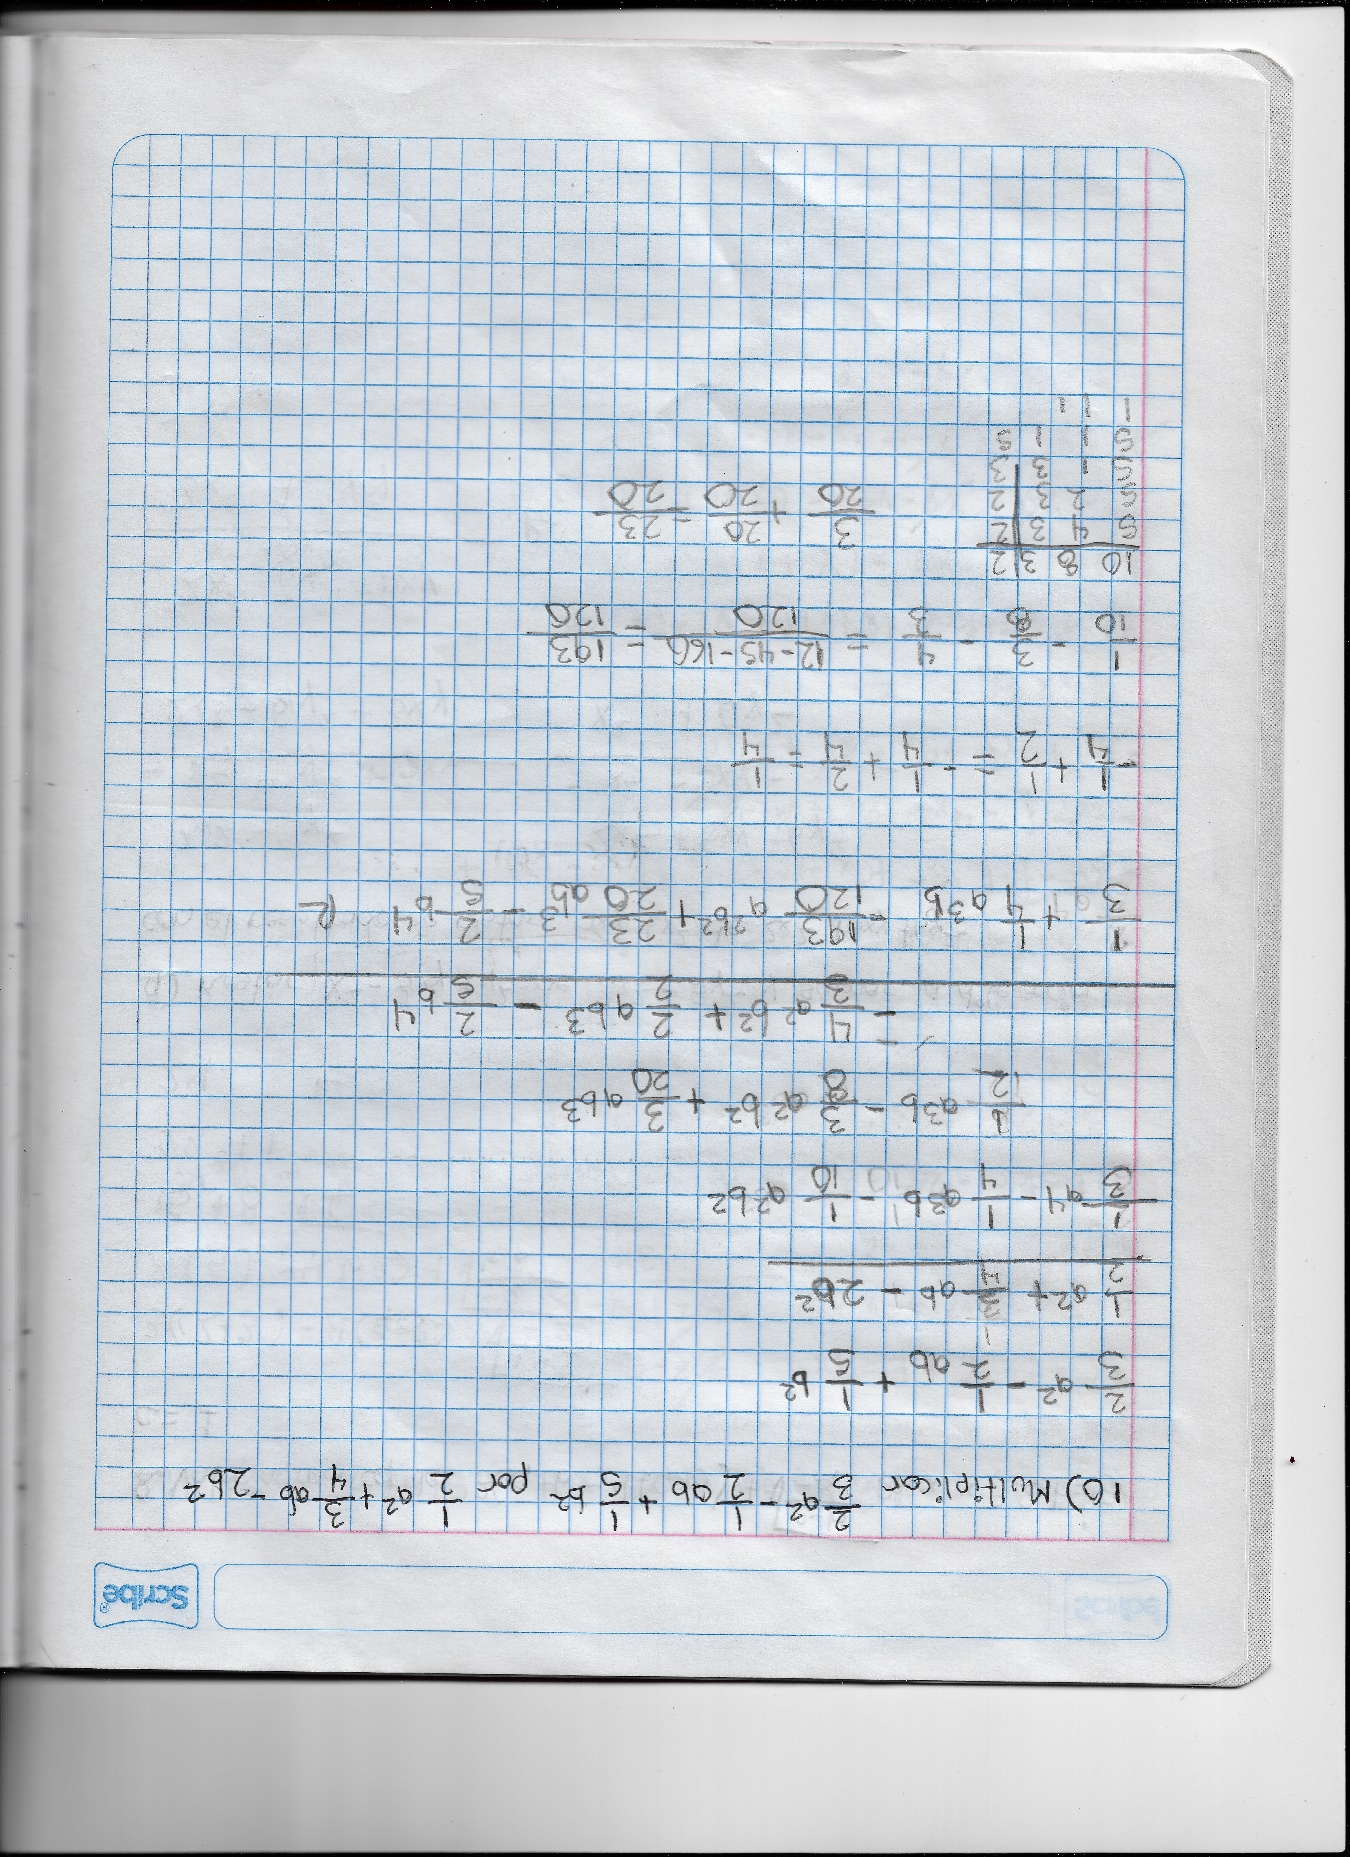 Scribe
10) Multiplicar 2/3 a² - 1/2 ab + 1/5 b² por 1/2 a² + 3/4 ab - 2b²
2/3 a² - 1/2 ab + 1/5 b²
1/2 a² + 3/4 ab - 2b²
1/3 a4 - 1/4 a3b - 1/10 a²b²
1/2 a3b - 3/8 a²b² + 3/20 ab3
- 4/3 a²b² + 2/2 ab3 - 2/5 b4
1/3 + 1/4 a3b - 193/120 a²b² + 23/20 ab3 - 2/5 b4 R
- 1/4 + 1/2 = - 1/4 + 2/4 = 1/4
1/10 - 3/8 - 4/3 = 12-45-160/120 = 193/120
10 8 3 2
5 4 3 2
5 2 3 2
5 1 3 3
5 1 1 5
1 1 1
3/20 + 20/20 = 23/20